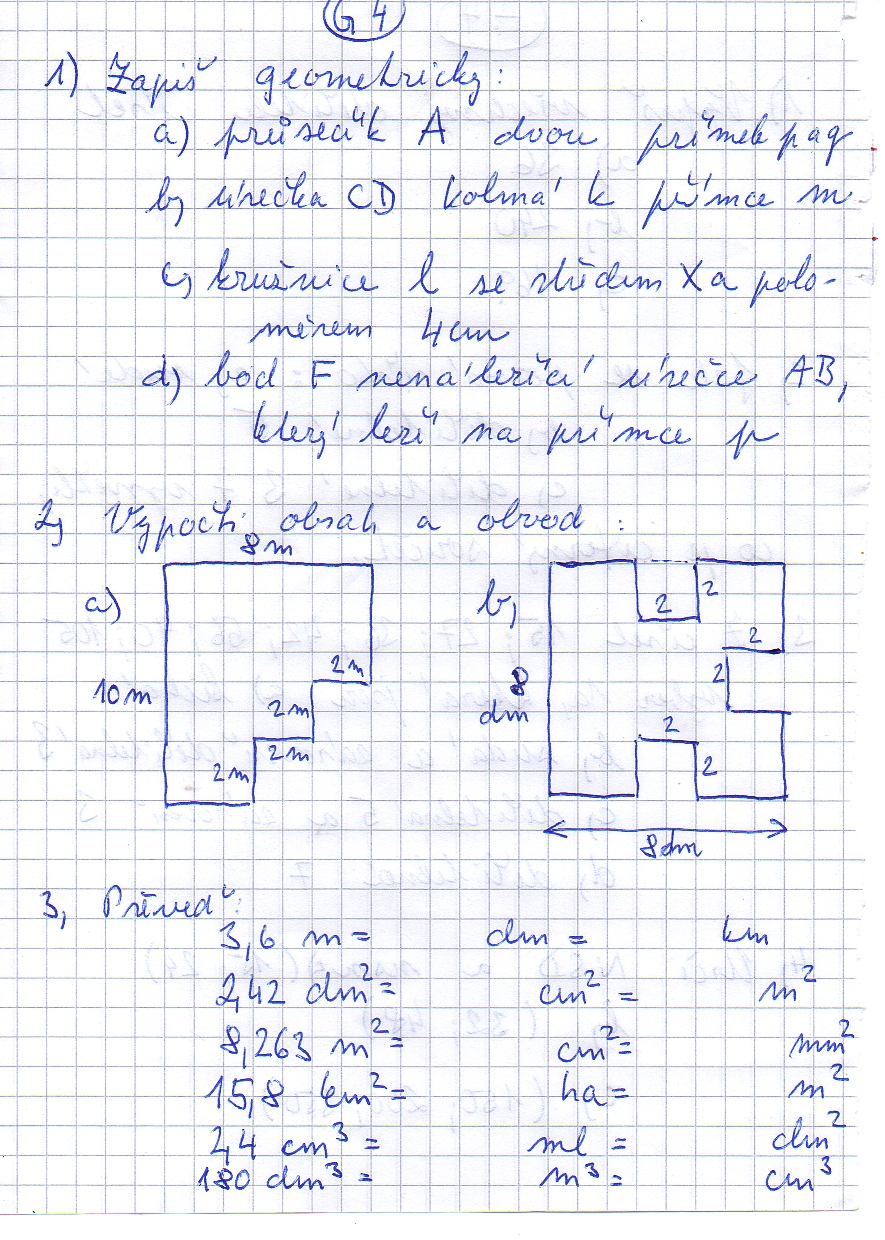 G 4
1) Zapiš geometricky:
a) průsečík A dvou přímek p a q
b) úsečka CD kolmá k přímce m
c) kružnice l se středem X a polo-
měrem 4 cm
d) bod F nenáležící úsečce AB,
který leží na přímce p
2, Vypočti obsah a obvod:
8 m
a)
10 m
2 m
2 m
2 m
2 m
b,
2
2
2
2
8
dm
2
2
8 dm
3, Převeď:
3,6 m = dm = km
2,42 dm² = cm² = m²
8,263 m² = cm² = mm²
15,8 km² = ha = m²
2,4 cm³ = ml = dm²
180 dm³ = m³ = cm³